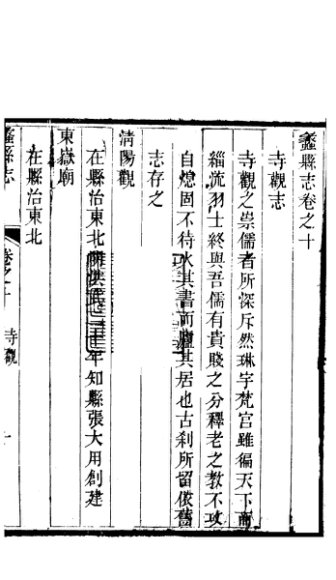 蠡縣志卷之十
寺觀志
寺觀之崇儒者所深斥然琳宇梵宮雖徧天下而
緇流羽士終與吾儒有貴賤之分釋老之教不攻
自熄固不待火其書而廬其居也古刹所留依舊
志存之
清陽觀
在縣治東北隅洪武年知縣張大用創建
東嶽廟
在縣治東北
蠡縣志 卷之十 寺觀 一